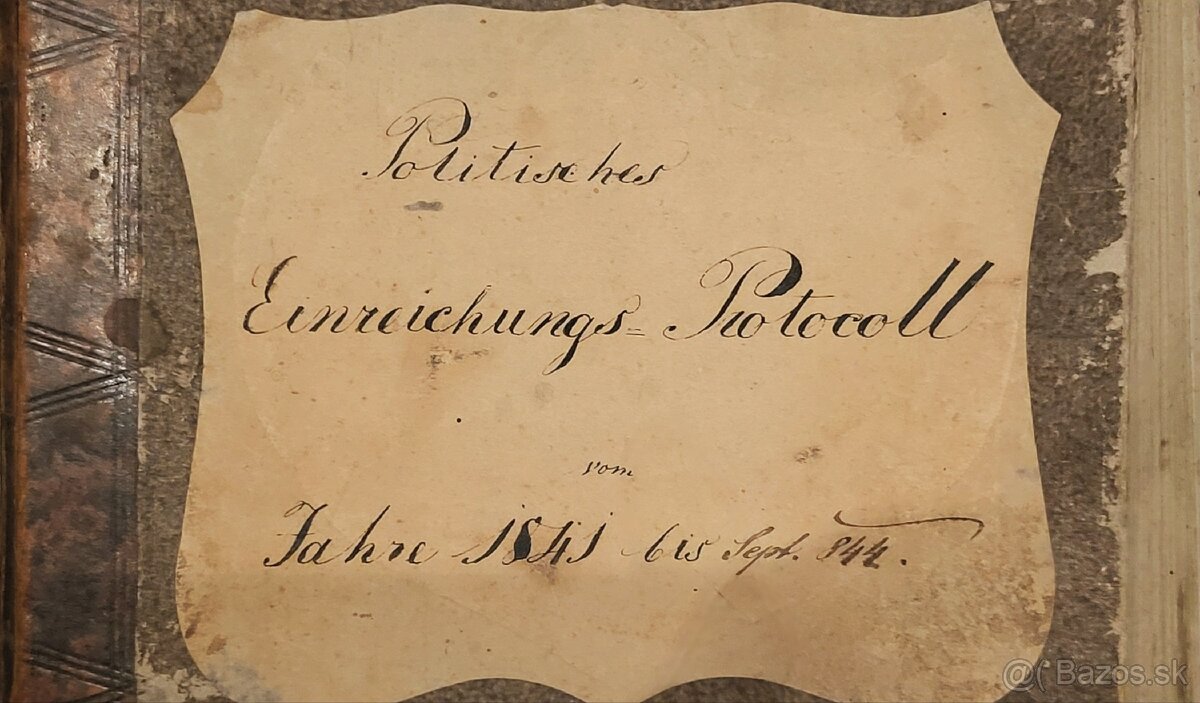 Politisches
Einreichungs= Protocoll
vom
Jahre 1841 bis Sept. 844.
@( Bazos.sk